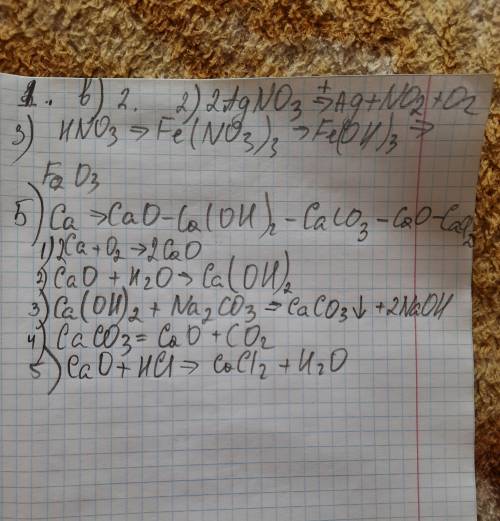 1. в) 2. 2) 2AgNO₃ ⇒ᵗ Ag + NO₂ + O₂
3) HNO₃ ⇒ Fe(NO₃)₃ ⇒ Fe(OH)₃ ⇒
Fe₂O₃
5) Ca ⇒ CaO - Ca(OH)₂ - CaCO₃ - CaO - CaCl₂
1) 2Ca + O₂ → 2CaO
2) CaO + H₂O → Ca(OH)₂
3) Ca(OH)₂ + Na₂CO₃ ⇒ CaCO₃↓ + 2NaOH
4) CaCO₃ = CaO + CO₂
5) CaO + HCl ⇒ CaCl₂ + H₂O